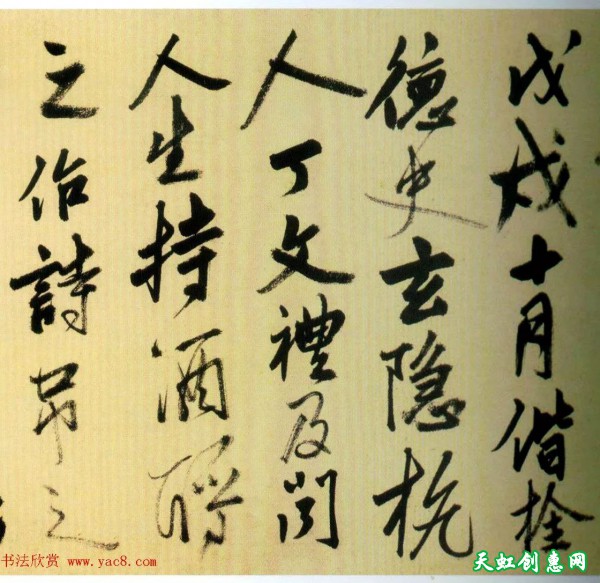 戊戌十月偕栓
德史玄隐杭
人丁文禮及
人生持酒酹
之作詩吊之
书法欣赏 www.yac8.com
天虹创惠网